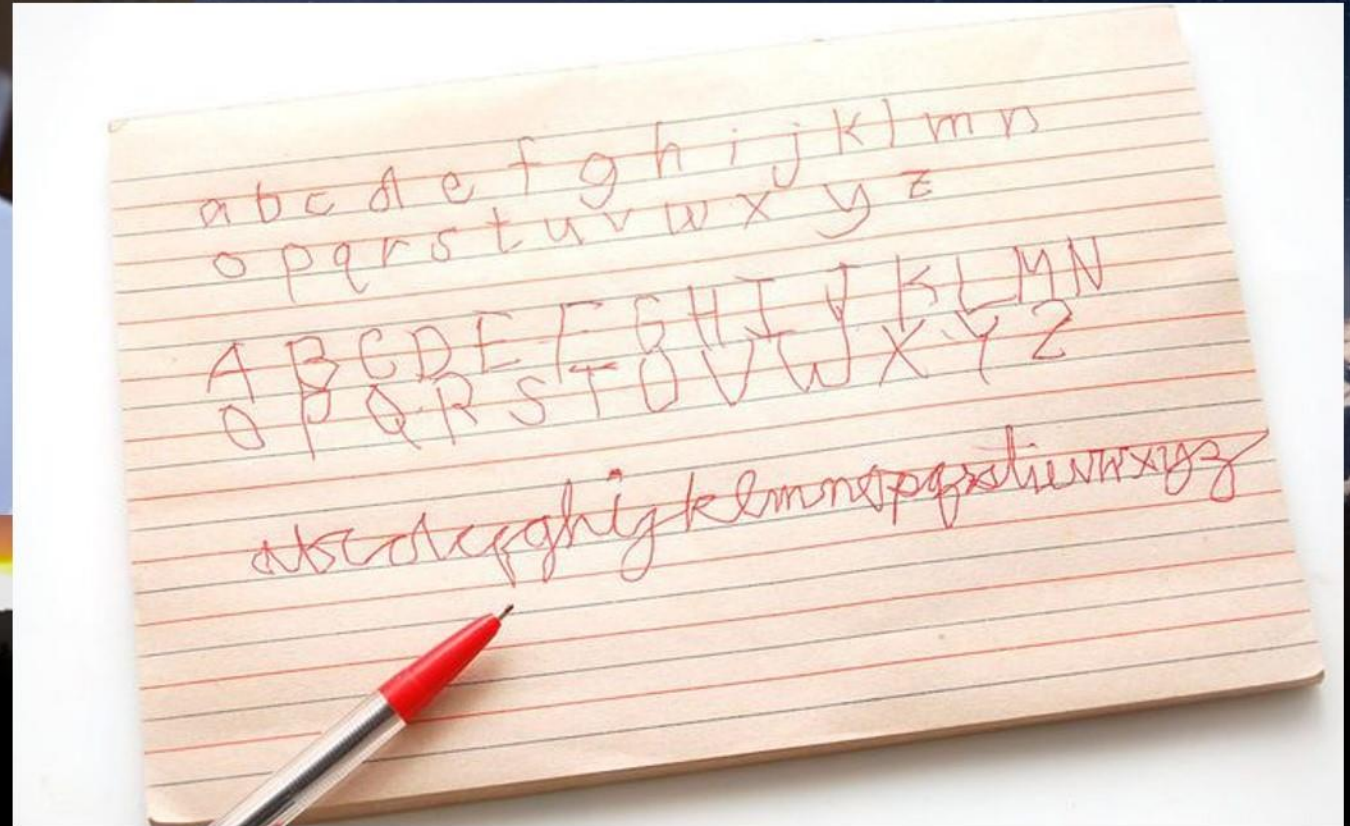 a b c d e f g h i j k l m n
o p q r s t u v w x y z
A B C D E F G H I J K L M N
O P Q R S T U V W X Y Z
abcdefghijklmnopqrstuvwxyz